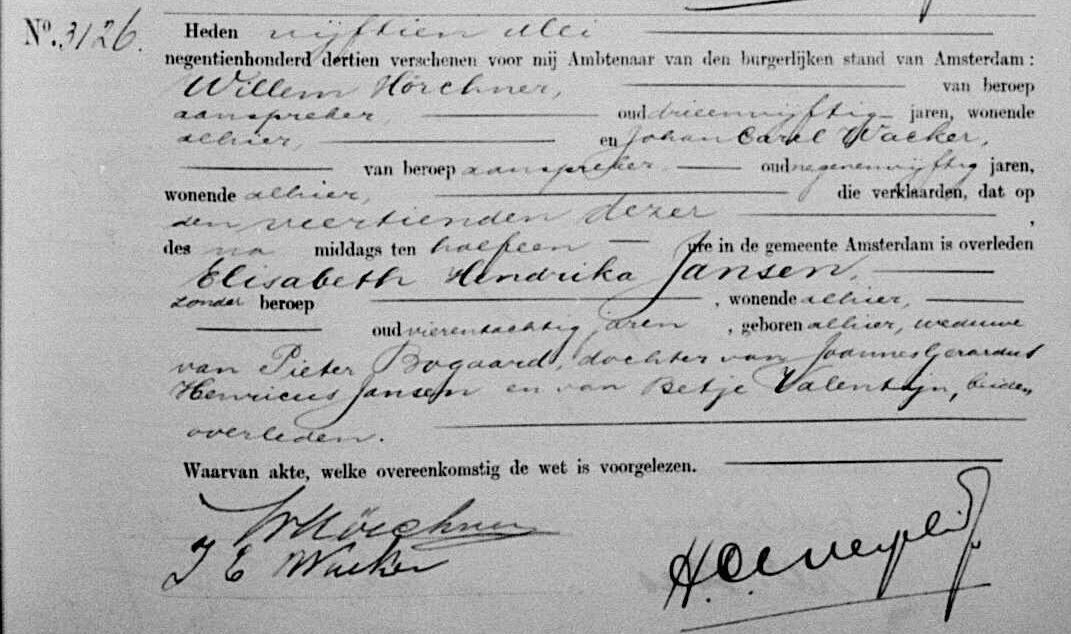 No. 3126.
Heden vijftien Mei
negentienhonderd dertien verschenen voor mij Ambtenaar van den burgerlijken stand van Amsterdam :
Willem Hörchner, van beroep
aanspreker, oud drieenvijftig jaren, wonende
alhier, en Johan Carel Wacker,
van beroep aanspreker oud negenenvijftig jaren,
wonende alhier, die verklaarden, dat op
den veertienden dezer ,
des na middags ten halfeen ure in de gemeente Amsterdam is overleden
Elisabeth Hendrika Jansen,
zonder beroep , wonende alhier,
oud vierentachtig jaren , geboren alhier, weduwe
van Pieter Bogaard, dochter van Joannes Gerardus
Henricus Jansen en van Betje Valentyn, beiden
overleden.
Waarvan akte, welke overeenkomstig de wet is voorgelezen.
WHörchner
Wacker